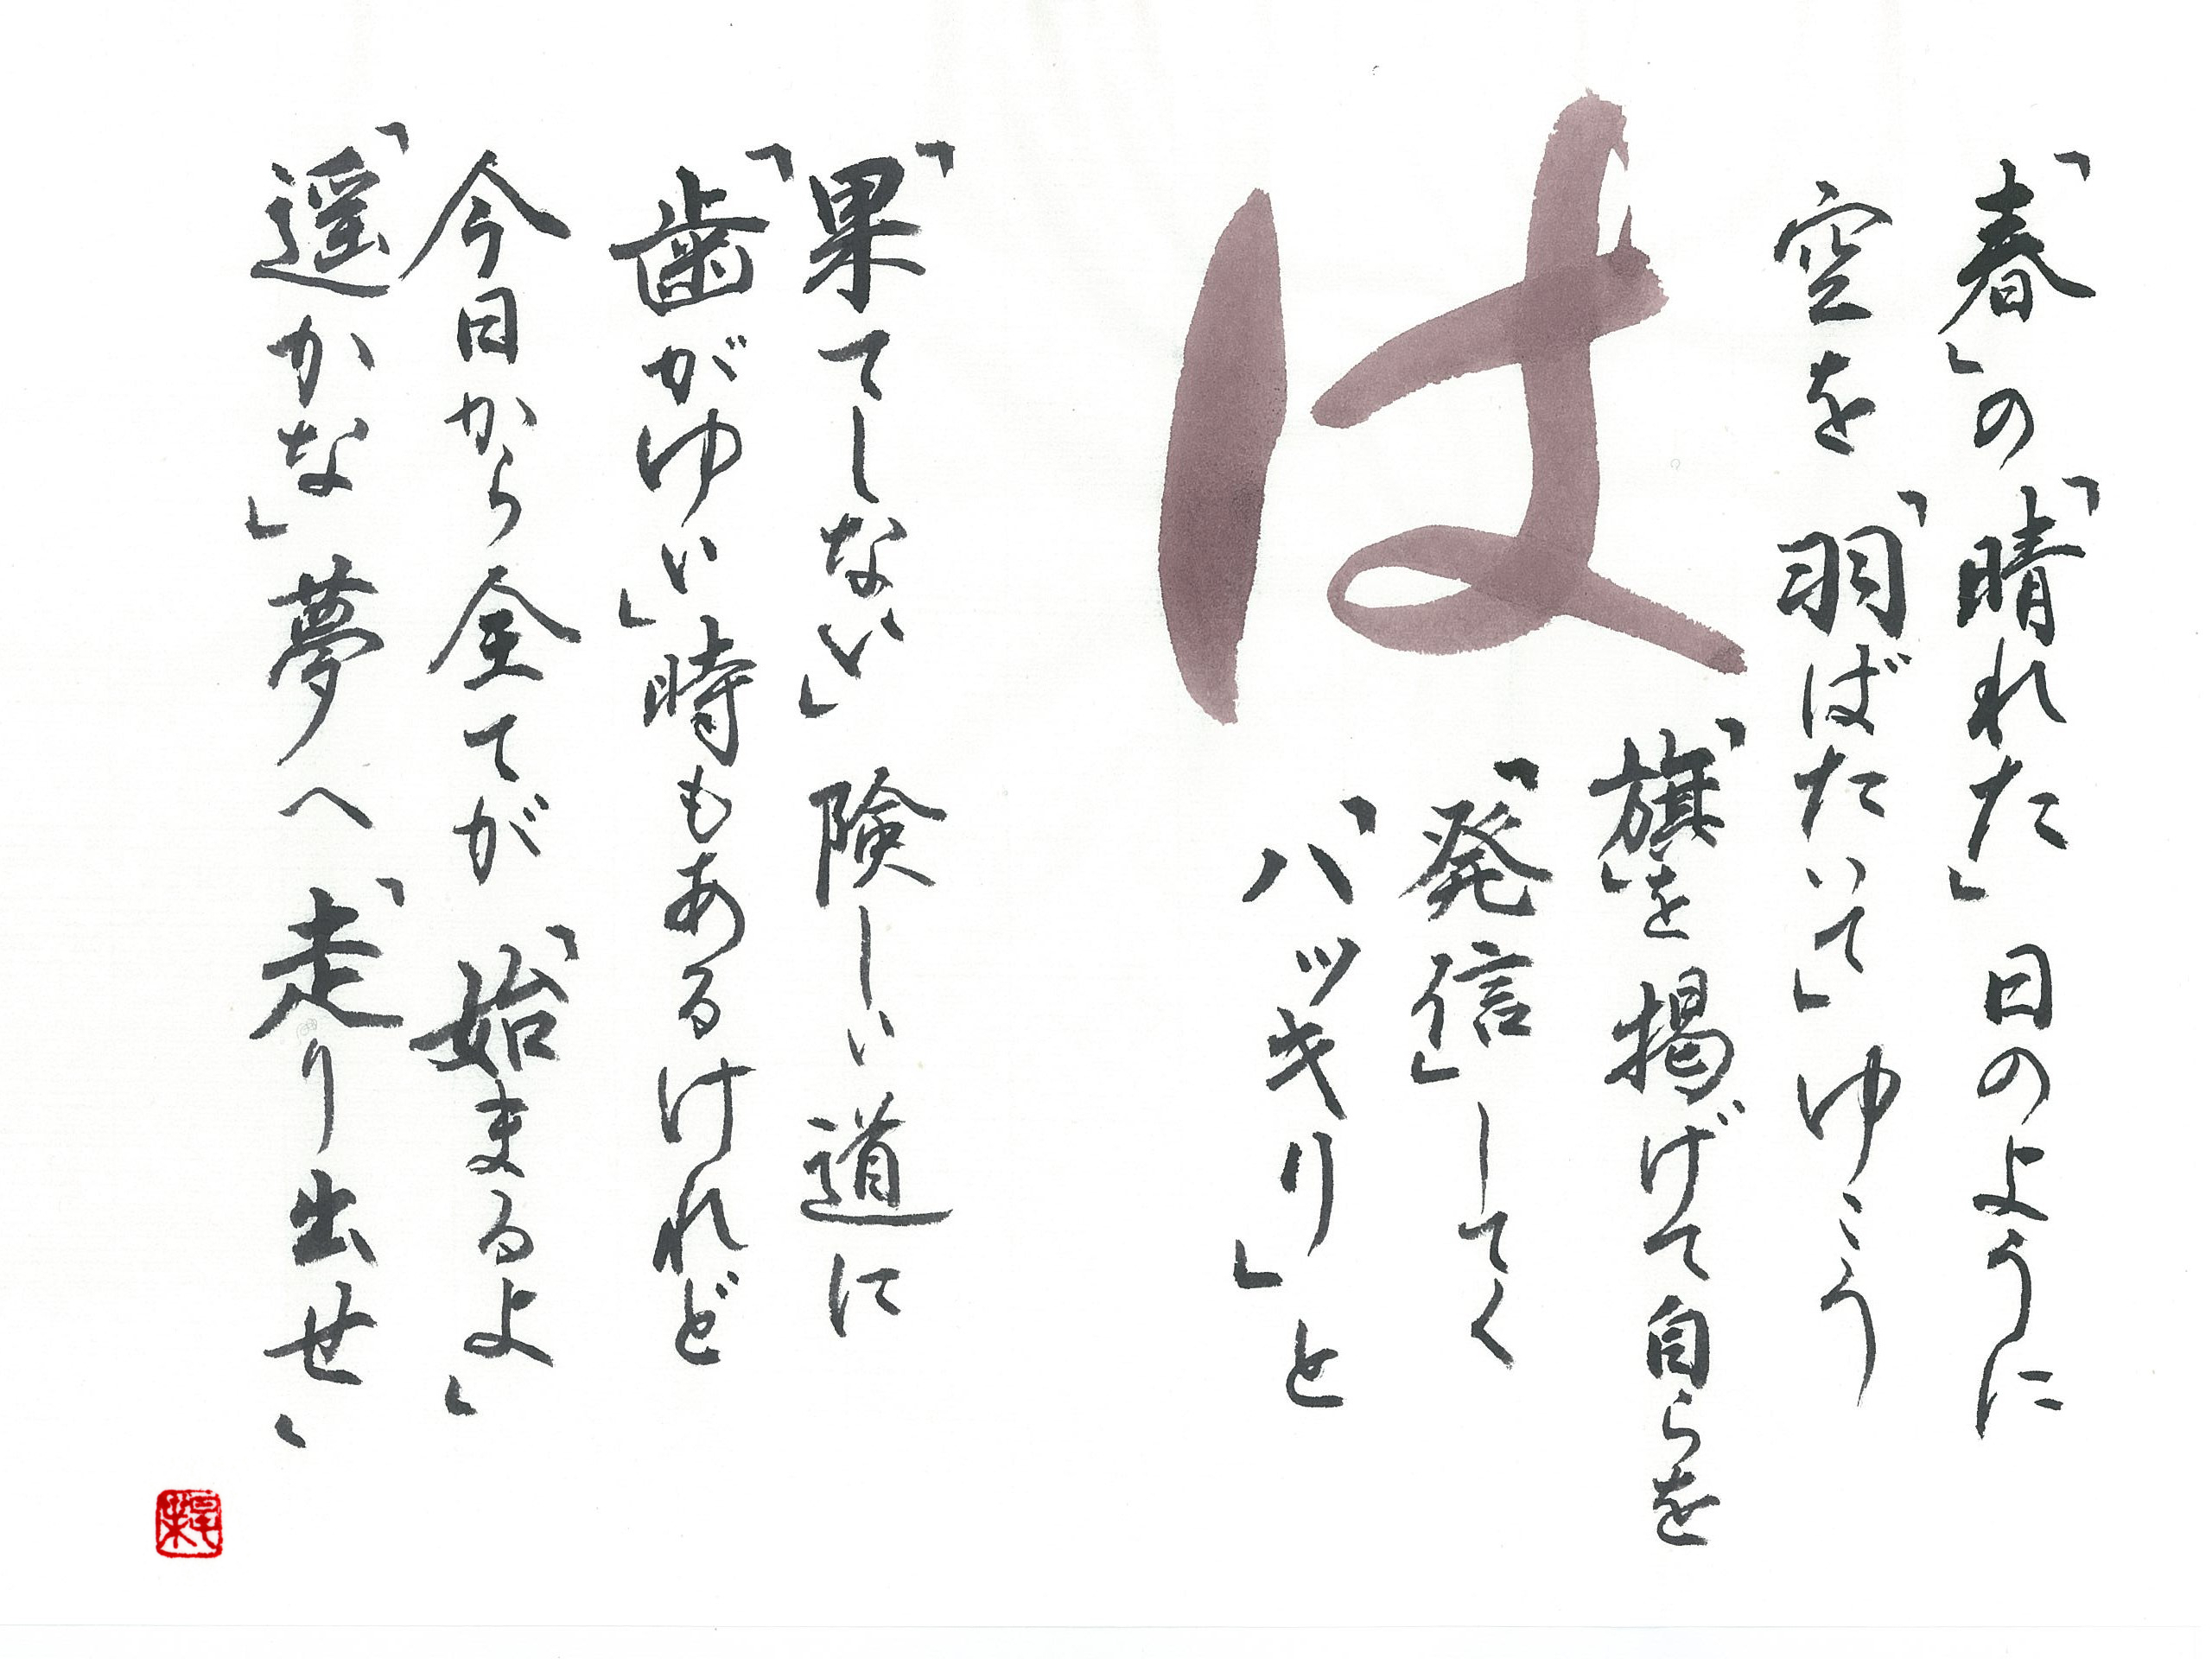 「春」の「晴れた」日のように
空を「羽ばたいて」ゆこう
「旗」を掲げて自らを
「発信」してく
「ハッキリ」と
は
「果てしない」険しい道に
「歯がゆい」時もあるけれど
今日から全てが「始まるよ」
「遥かな」夢へ「走り出せ」